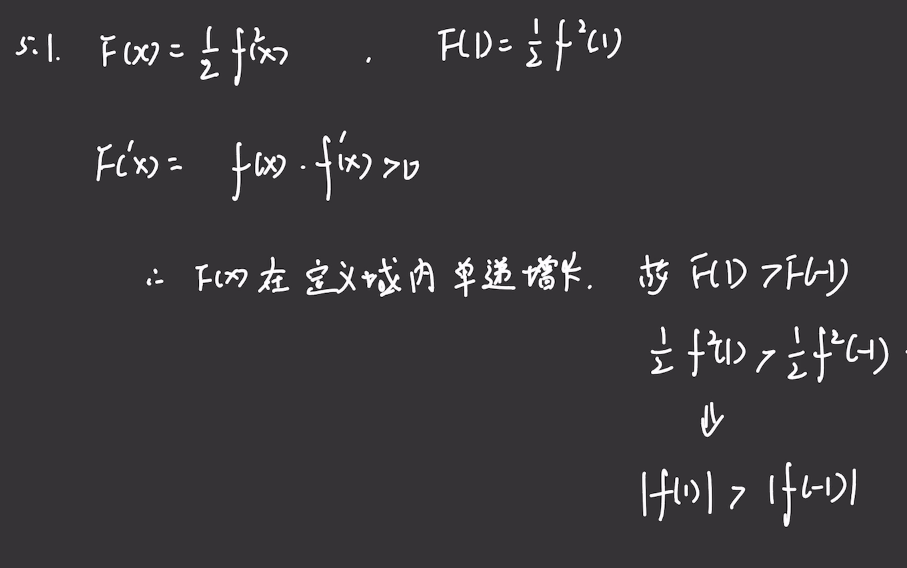 5.1. F(x) = 1/2 f²(x) . F(1) = 1/2 f²(1)
F'(x) = f(x) · f'(x) > 0
∴ F(x) 在定义域内单递增长. 故 F(1) > F(-1)
1/2 f²(1) > 1/2 f²(-1)
⇓
|f(1)| > |f(-1)|